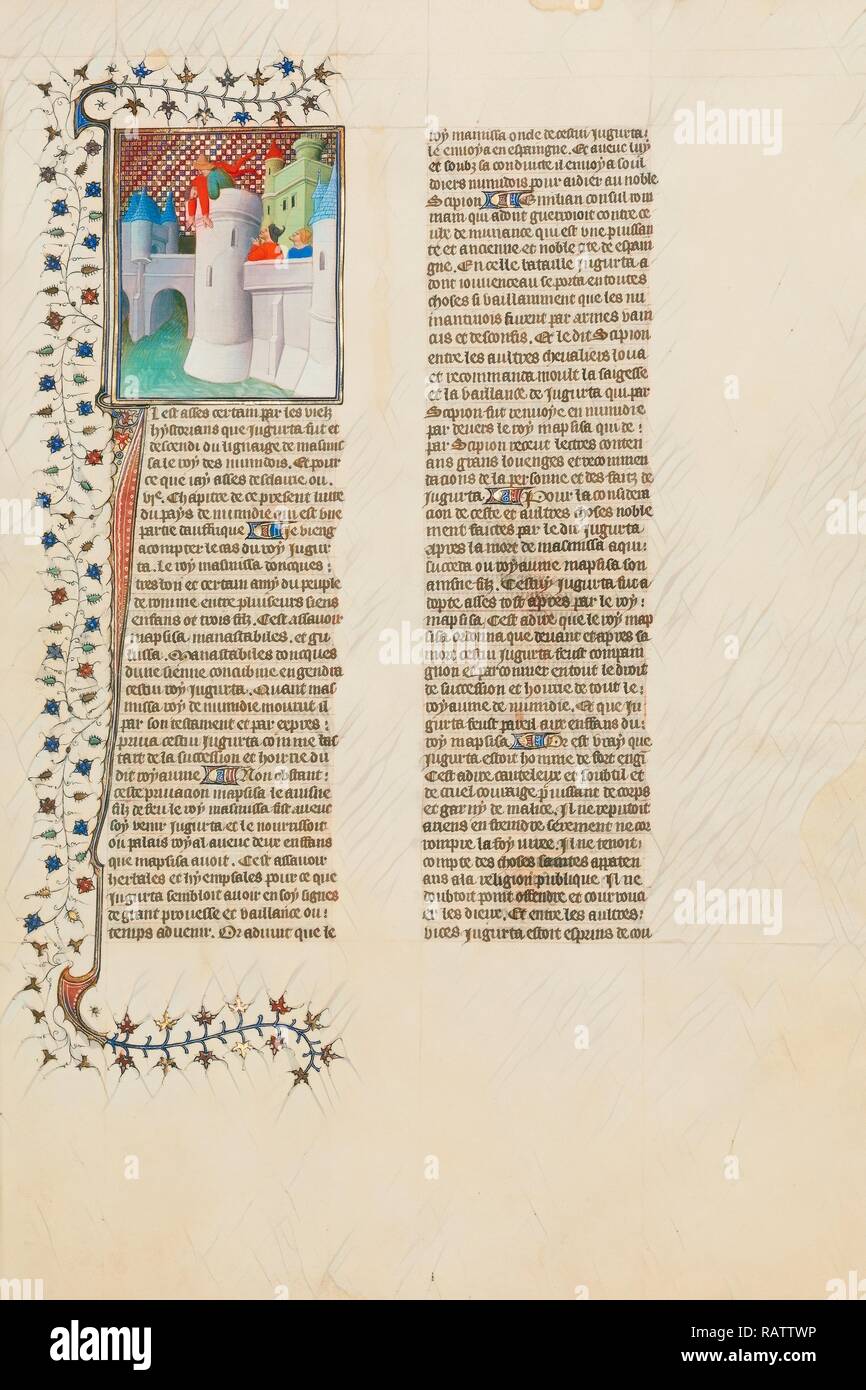 Il est asses certain par les vielz
hystorians que Jugurta fut et
descendi du lignaige de masinis
sa le roy des numidois. Et pour
ce que iay asses desclaire ou.
Chapitre de ce present livre
du pays de numidie qui est une
partie dauffrique Je vieng
a compter le cas du roy Jugur
ta. Le roy masinissa doncques:
tresbon et certain amy du peuple
de romme entre plusieurs siens
enfans ot trois filz. Cest assavoir
mapsisa. manastabiles. et gu
lussa. Manastabiles doncques
dune sienne concubine engendra
cestui roy Jugurta. Quant mas
nissa roy de numidie mourut il
par son testament et par expres:
priva cestui Jugurta comme bas
tart de la succession et hoirie du
dit royaume Non obstant:
ceste privacion mapsisa le ainsne
filz de feu le roy masinissa fist avecq
soy venir Jugurta et le nourrissoit
ou palais royal avecq deux enffans
que mapsisa avoit. Cest assavoir
herbales et hyempsales pour ce que
Jugurta sembloit avoir en soy signes
de grant prouesse et vaillance ou:
temps advenir. Or advint que le
roy manissa oncle de cestui Jugurta:
le envoya en espaingne. Et avecq luy
et soubz sa conduicte il envoya soul
doiers numidois pour aidier au noble
Scipion Emilian consul rom
main qui adont guerroioit contre ce
ite de numance qui est une puissan
te et ancienne et noble cite de espain
gne. En celle bataille Jugurta a
dont iouvenceau se porta en toutes
choses si vaillamment que les nu
mantinois furent par armes vain
cus et desconfis. Et le dit Scipion
entre les aultres chevaliers loua
et recommanda moult la saigesse
et la vaillance de Jugurta qui par
Scipion fut renvoye en numidie
par devers le roy mapsisa qui de:
par Scipion receut lectres conten
ans grans louenges et recommen
tacions de la personne et des faitz de
Jugurta Pour la considera
cion de ceste et aultres choses noble
ment faictes par le dit Jugurta
apres la mort de masinissa a qui:
succeda ou royaume mapsisa son
ainsne filz. Cestuy Jugurta fut a
dopte asses tost apres par le roy:
mapsisa. Cest a dire que le roy map
sisa ordonna que devant et apres sa
mort cestui Jugurta feust compain
gnon et parconnier en tout le droit
de succession et hoirie de tout le:
royaume de numidie. Et que Ju
gurta feust pareil aux enffans du:
roy mapsisa Or est vray que
Jugurta estoit homme de fort engi
Cest a dire cauteleux et soubtil et
de cruel couraige puissant de corps
et garny de malice. Il ne reputoit
a riens enfreindre serement ne cor
rompre la foy juree. Il ne tenoit:
compte des choses saintes apparten
ans a la religion publique Il ne
doubtoit point offendre et courrouci
er les dieux. Et entre les aultres:
vices Jugurta estoit esprins de cou
alamy
Image ID: RATTWP
www.alamy.com